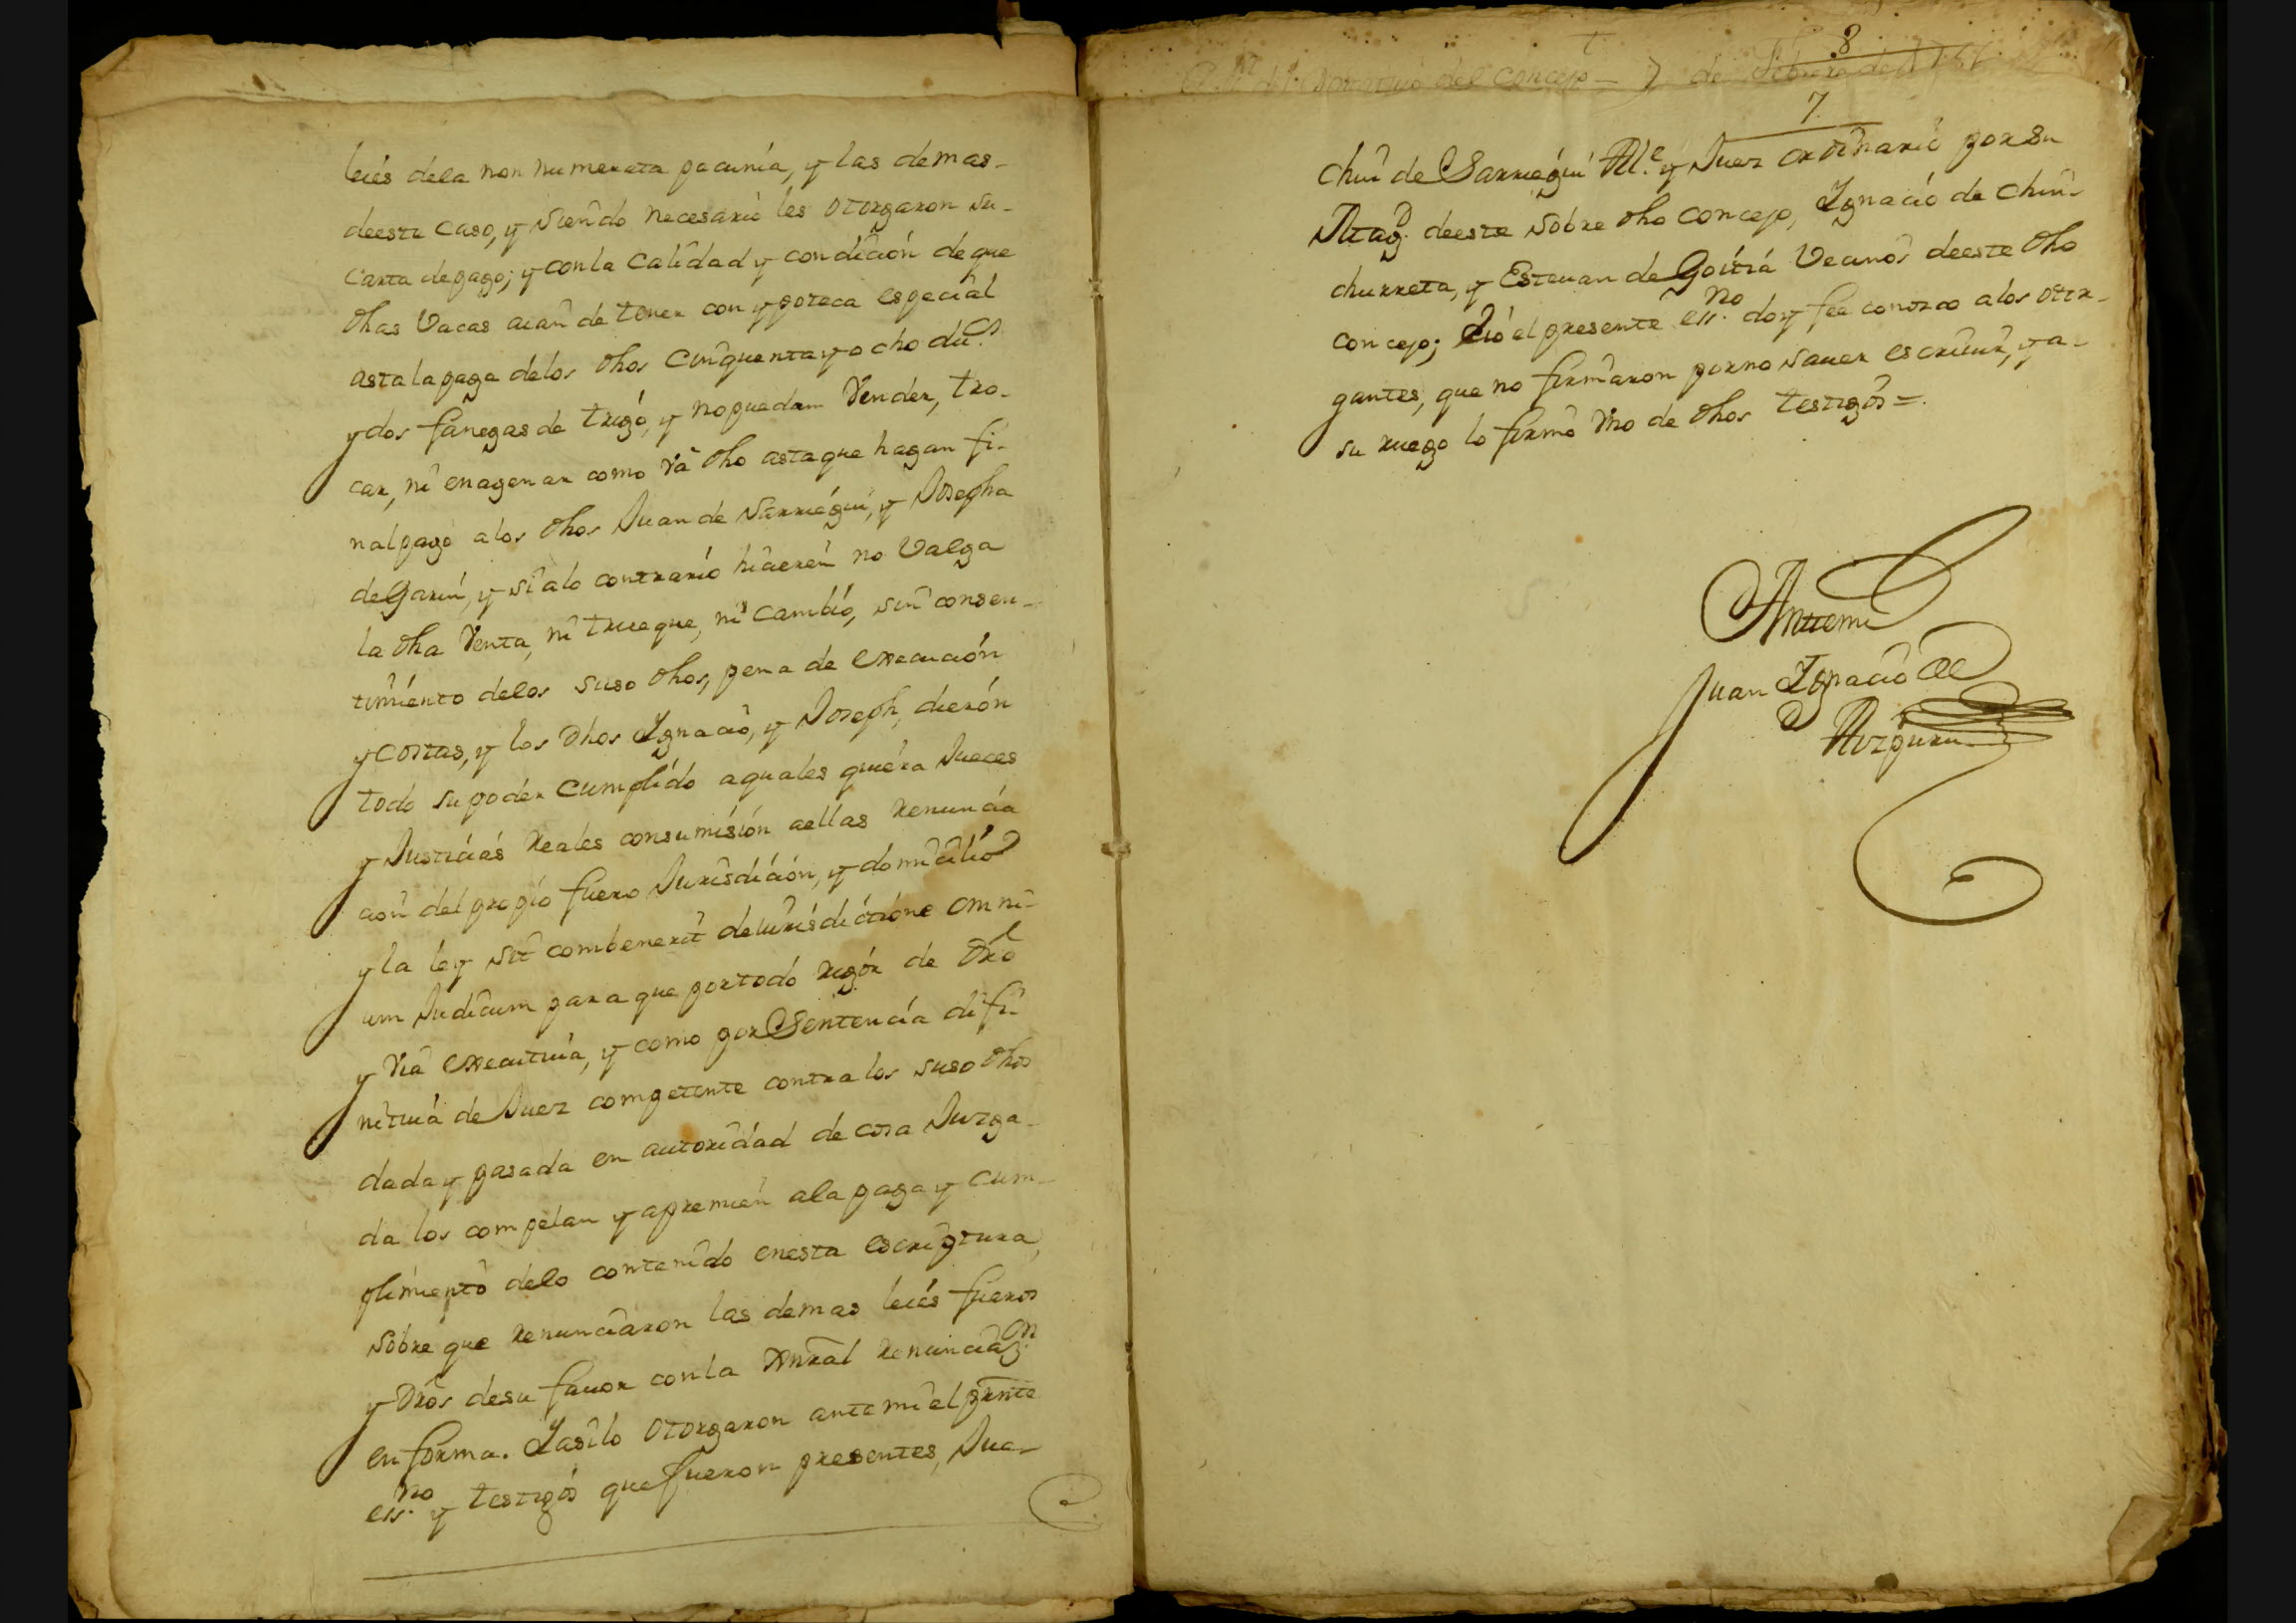 leiés dela non numerata pacunia, y las demas-
deeste caso, y siendo necesario les otorgaron su-
carta depago; y conla Calidad y condición deque
dhas Vacas aian de tener con ypoteca especial
asta la paga délos dhos Cinquenta y ocho du.os
y dos fanegas de trigo, y nopuedan Vender, tro-
car, ni enagenar como Vá dho astaque hagan fi-
nalpago alos dhos Juan de Sarriégui, y Josepha
deGarin, y si alo contrario hicieren no Valga
la dha Venta, ni trueque, ni cambio, sin consen-
timiento delos suso dhos, pena de execución
y costas, y los dhos Ignacio, y Joseph, dierón
todo supoder cumplido aquales quiera Jueces
y Justiciás Reales consumisión aellas renuncia
cion del propio fuero Jurisdición, y domicilio
y la ley sit combenerit deiurisdictióne omni-
um Judicum para que portodo rigór de dro
y Via executiua, y como por Sentencia difi-
nitiuá de Juez competente contra los suso dhos
dada y pasada en autoridad de cosa Juzga-
da los compelan y apremien ala paga y cum-
plimiento delo contenido enesta escriptura,
sobre que renunciaron las demas leiés fueros
y dros desu fauor conla Gnral renunciaz.on
en forma. Iasilo otorgaron ante mi el prnte
ess.no y testigos que fueron presentes, Jua-
8
del concejo = 7 de Febrero de
7
chin de Sarriegui Al.e y Juez ordinario por Su
Mag.d deeste sobre dho concejo, Ignacio de Chin-
churreta, y Esteuan de Goitia Vecinos deeste dho
concejo; Eió el presente ess.no doy fee conozco alos otor-
gantes, que no firmaron porno sauer escriuir, y a-
su ruego lo firmó Vno de dhos testigos =.
Antemi
Juan Ignacio de
Aizpuru